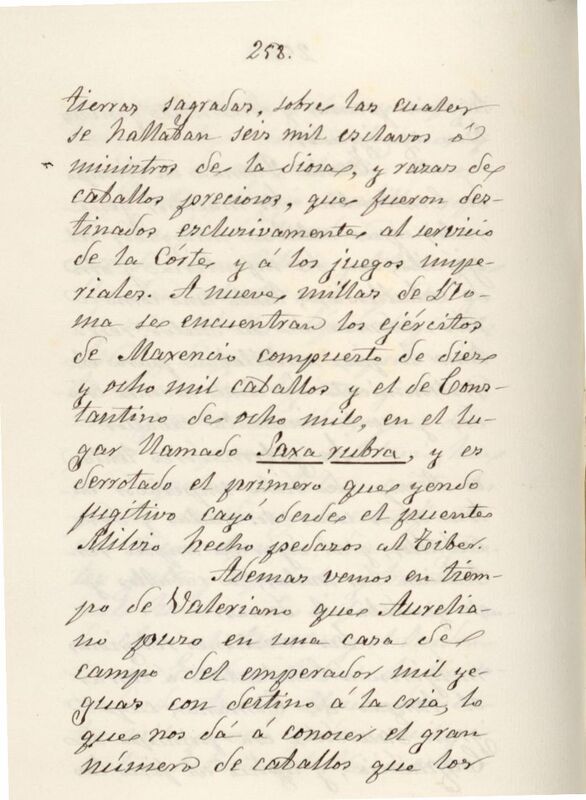 258.
tierras sagradas, sobre las cuales
se hallaban seis mil esclavos ó
ministros de la diosa, y razas de
caballos preciosos, que fueron des-
tinados esclusivamente al servicio
de la Córte y á los juegos impe-
riales. A nueve millas de Ro-
ma se encuentran los ejércitos
de Maxencio compuesto de diez
y ocho mil caballos y el de Cons-
tantino de ocho mil, en el lu-
gar llamado Saxa rubra, y es
derrotado el primero que yendo
fugitivo cayó desde el puente
Milvio hecho pedazos al Tiber.
Ademas vemos en tiem-
po de Valeriano que Aurelia-
no puso en una casa de
campo del emperador mil ye-
guas con destino á la cria, lo
que nos dá á conocer el gran
número de caballos que los